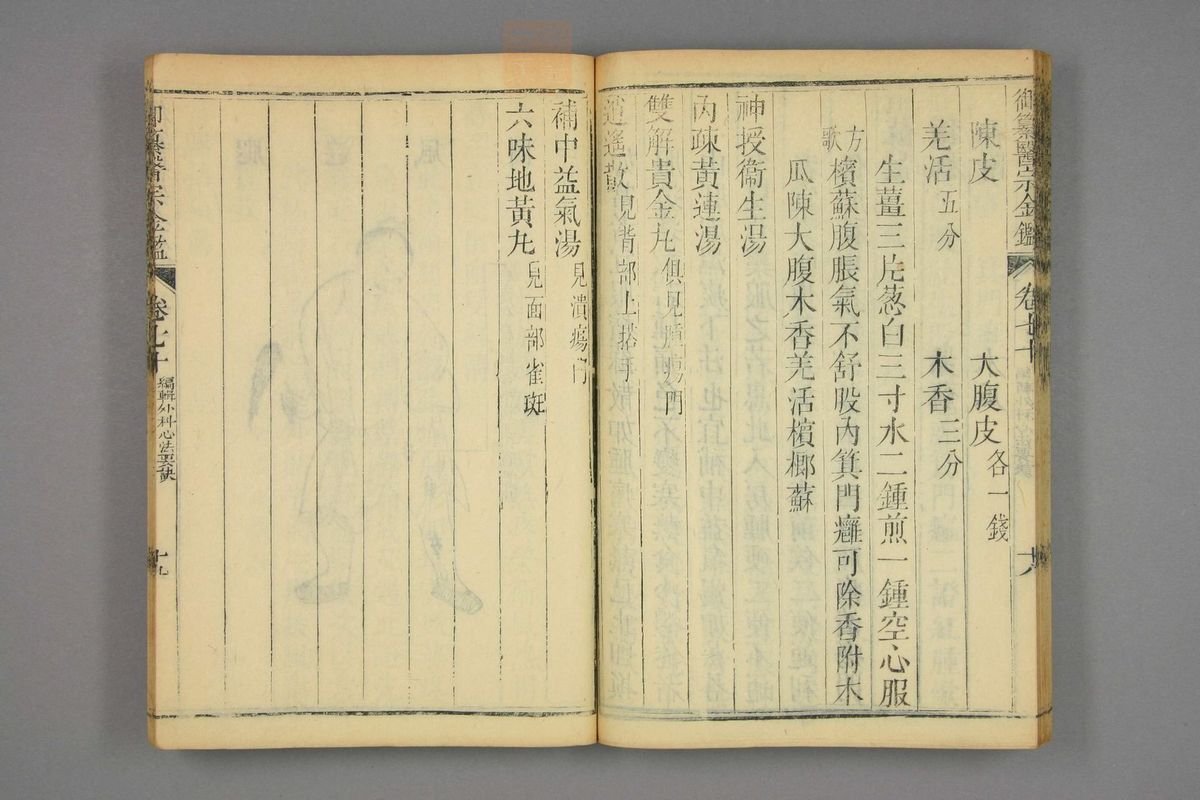 御纂醫宗金鑑 卷七十
大
陳皮 大腹皮各一錢
羌活五分 木香三分
生薑三片葱白三寸水二鍾煎一鍾空心服
方歌 檳蘇腹脹氣不舒股內箕門癰可除香附木
瓜陳大腹木香羌活檳榔蘇
神授衞生湯
內疎黃連湯
雙解貴金丸俱見腫瘍門
逍遙散見背部上搭手
補中益氣湯見潰瘍門
六味地黃丸見面部雀斑
御纂醫宗金鑑 卷七十 編輯外科心法要訣 十九